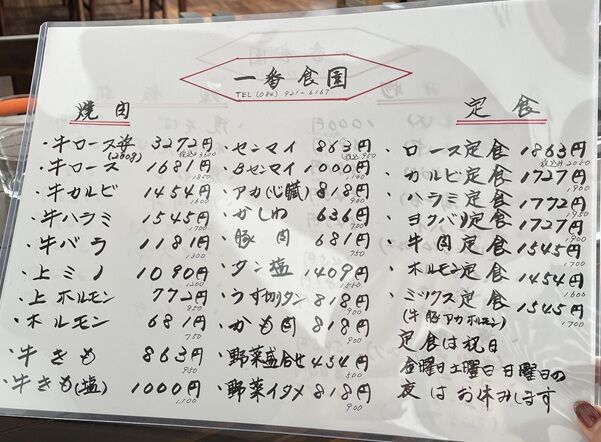 一番食園
TEL (082) 921-6167
焼肉
・牛ロース芯 3272円
(200g) 税込み3600
・牛ロース 1681円
1850
・牛カルビ 1454円
1600
・牛ハラミ 1545円
1700
・牛バラ 1181円
1300
・上ミノ 1090円
1200
・上ホルモン 772円
850
・ホルモン 681円
750
・牛きも 863円
950
・牛きも(塩) 1000円
1,100
・センマイ 863円
税込950
・Bセンマイ 1000円
1,100
・アカ(心臓) 818円
900
・かしわ 636円
700
・豚肉 681円
750
・タン塩 1409円
1,550
・うす切りタン 818円
900
・かも肉 818円
900
・野菜盛合せ 454円
500
・野菜イタメ 818円
900
定食
・ロース定食 1863円
税込み2050
・カルビ定食 1727円
1900
・ハラミ定食 1772円
1950
・ヨクバリ定食 1727円
1900
・牛肉定食 1545円
1700
・ホルモン定食 1454円
1600
・ミックス定食 1545円
(牛豚アカホルモン) 1700
定食は祝日
金曜日土曜日日曜日の
夜はお休みします